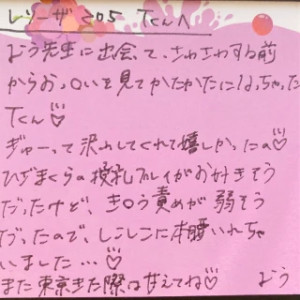 205 Tくんへ
先生に出会って、さわさわする前
からおっ○いを見てかたかたになっちゃった
Tくん♡
ぎゅーって沢山してくれて嬉しかったの♡
ひざまくらの授乳プレイがお好きそう
だったけど、き○う責めが弱そう
だったので、しこしこに本腰いれちゃ
いました…♡
また東京きた際は甘えてね♡